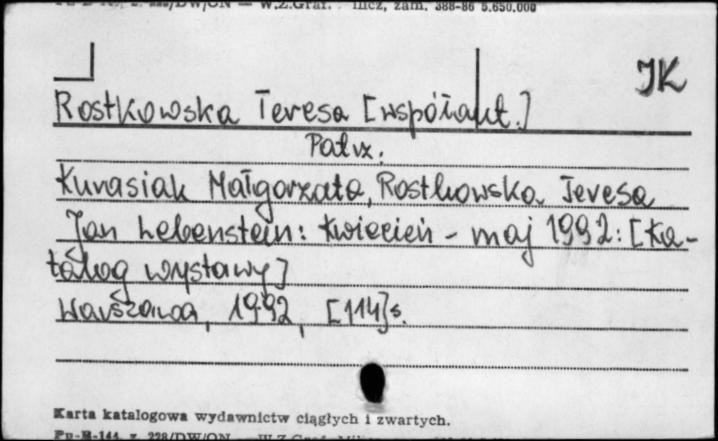 W.Z.Graf. zam. 388-86 5.650.000
JK
Rostkowska Teresa [współaut.]
Patrz:
Kurasiak Małgorzata, Rostkowska Teresa
Jan Lebenstein: kwiecień - maj 1992: [ka-
talog wystawy]
Warszawa, 1992, [114]s.
Karta katalogowa wydawnictw ciągłych i zwartych.
Pu-M-144, z. 228/DW/ON — W.Z.Graf.